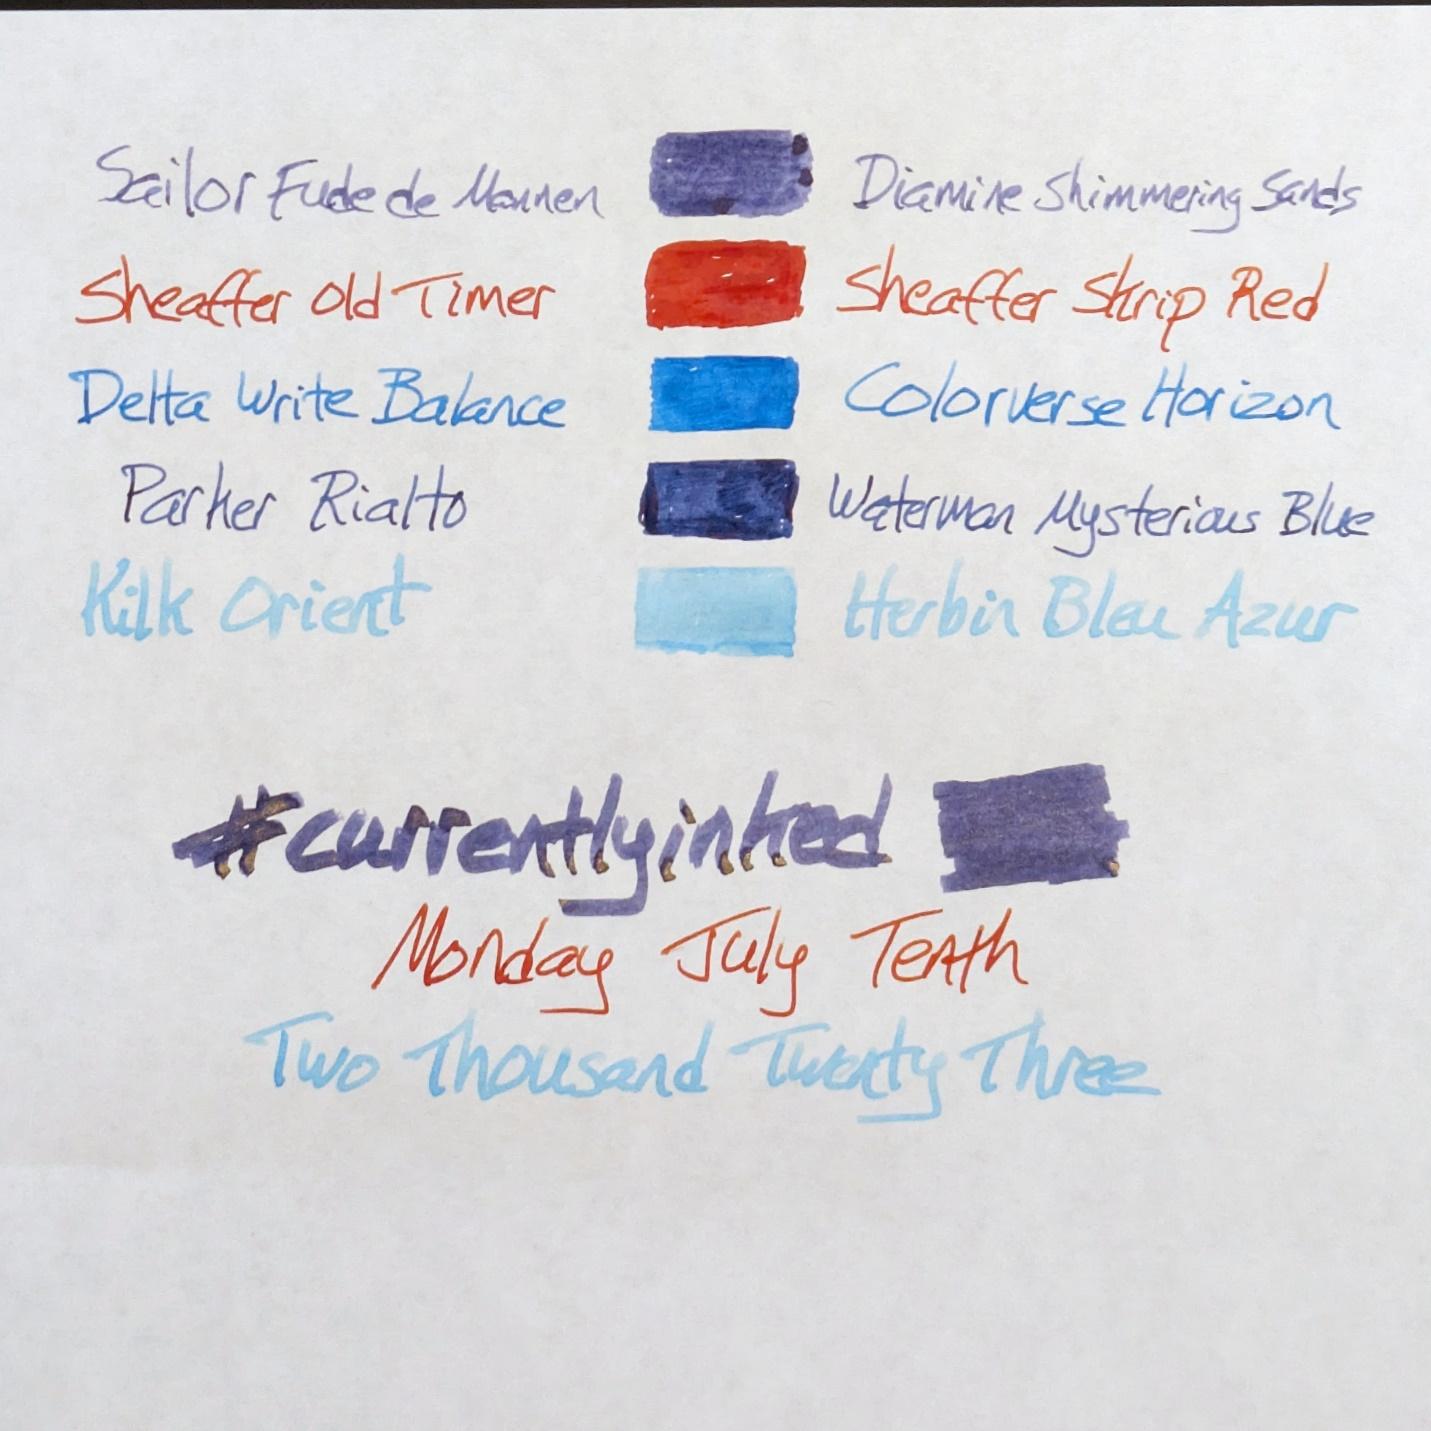 Sailor Fude de Mannen Diamine Shimmering Sands
Sheaffer Old Timer Sheaffer Skrip Red
Delta Write Balance Colorverse Horizon
Parker Rialto Waterman Mysterious Blue
Kilk Orient Herbin Bleu Azur
#currentlyinked
Monday July Tenth
Two Thousand Twenty Three